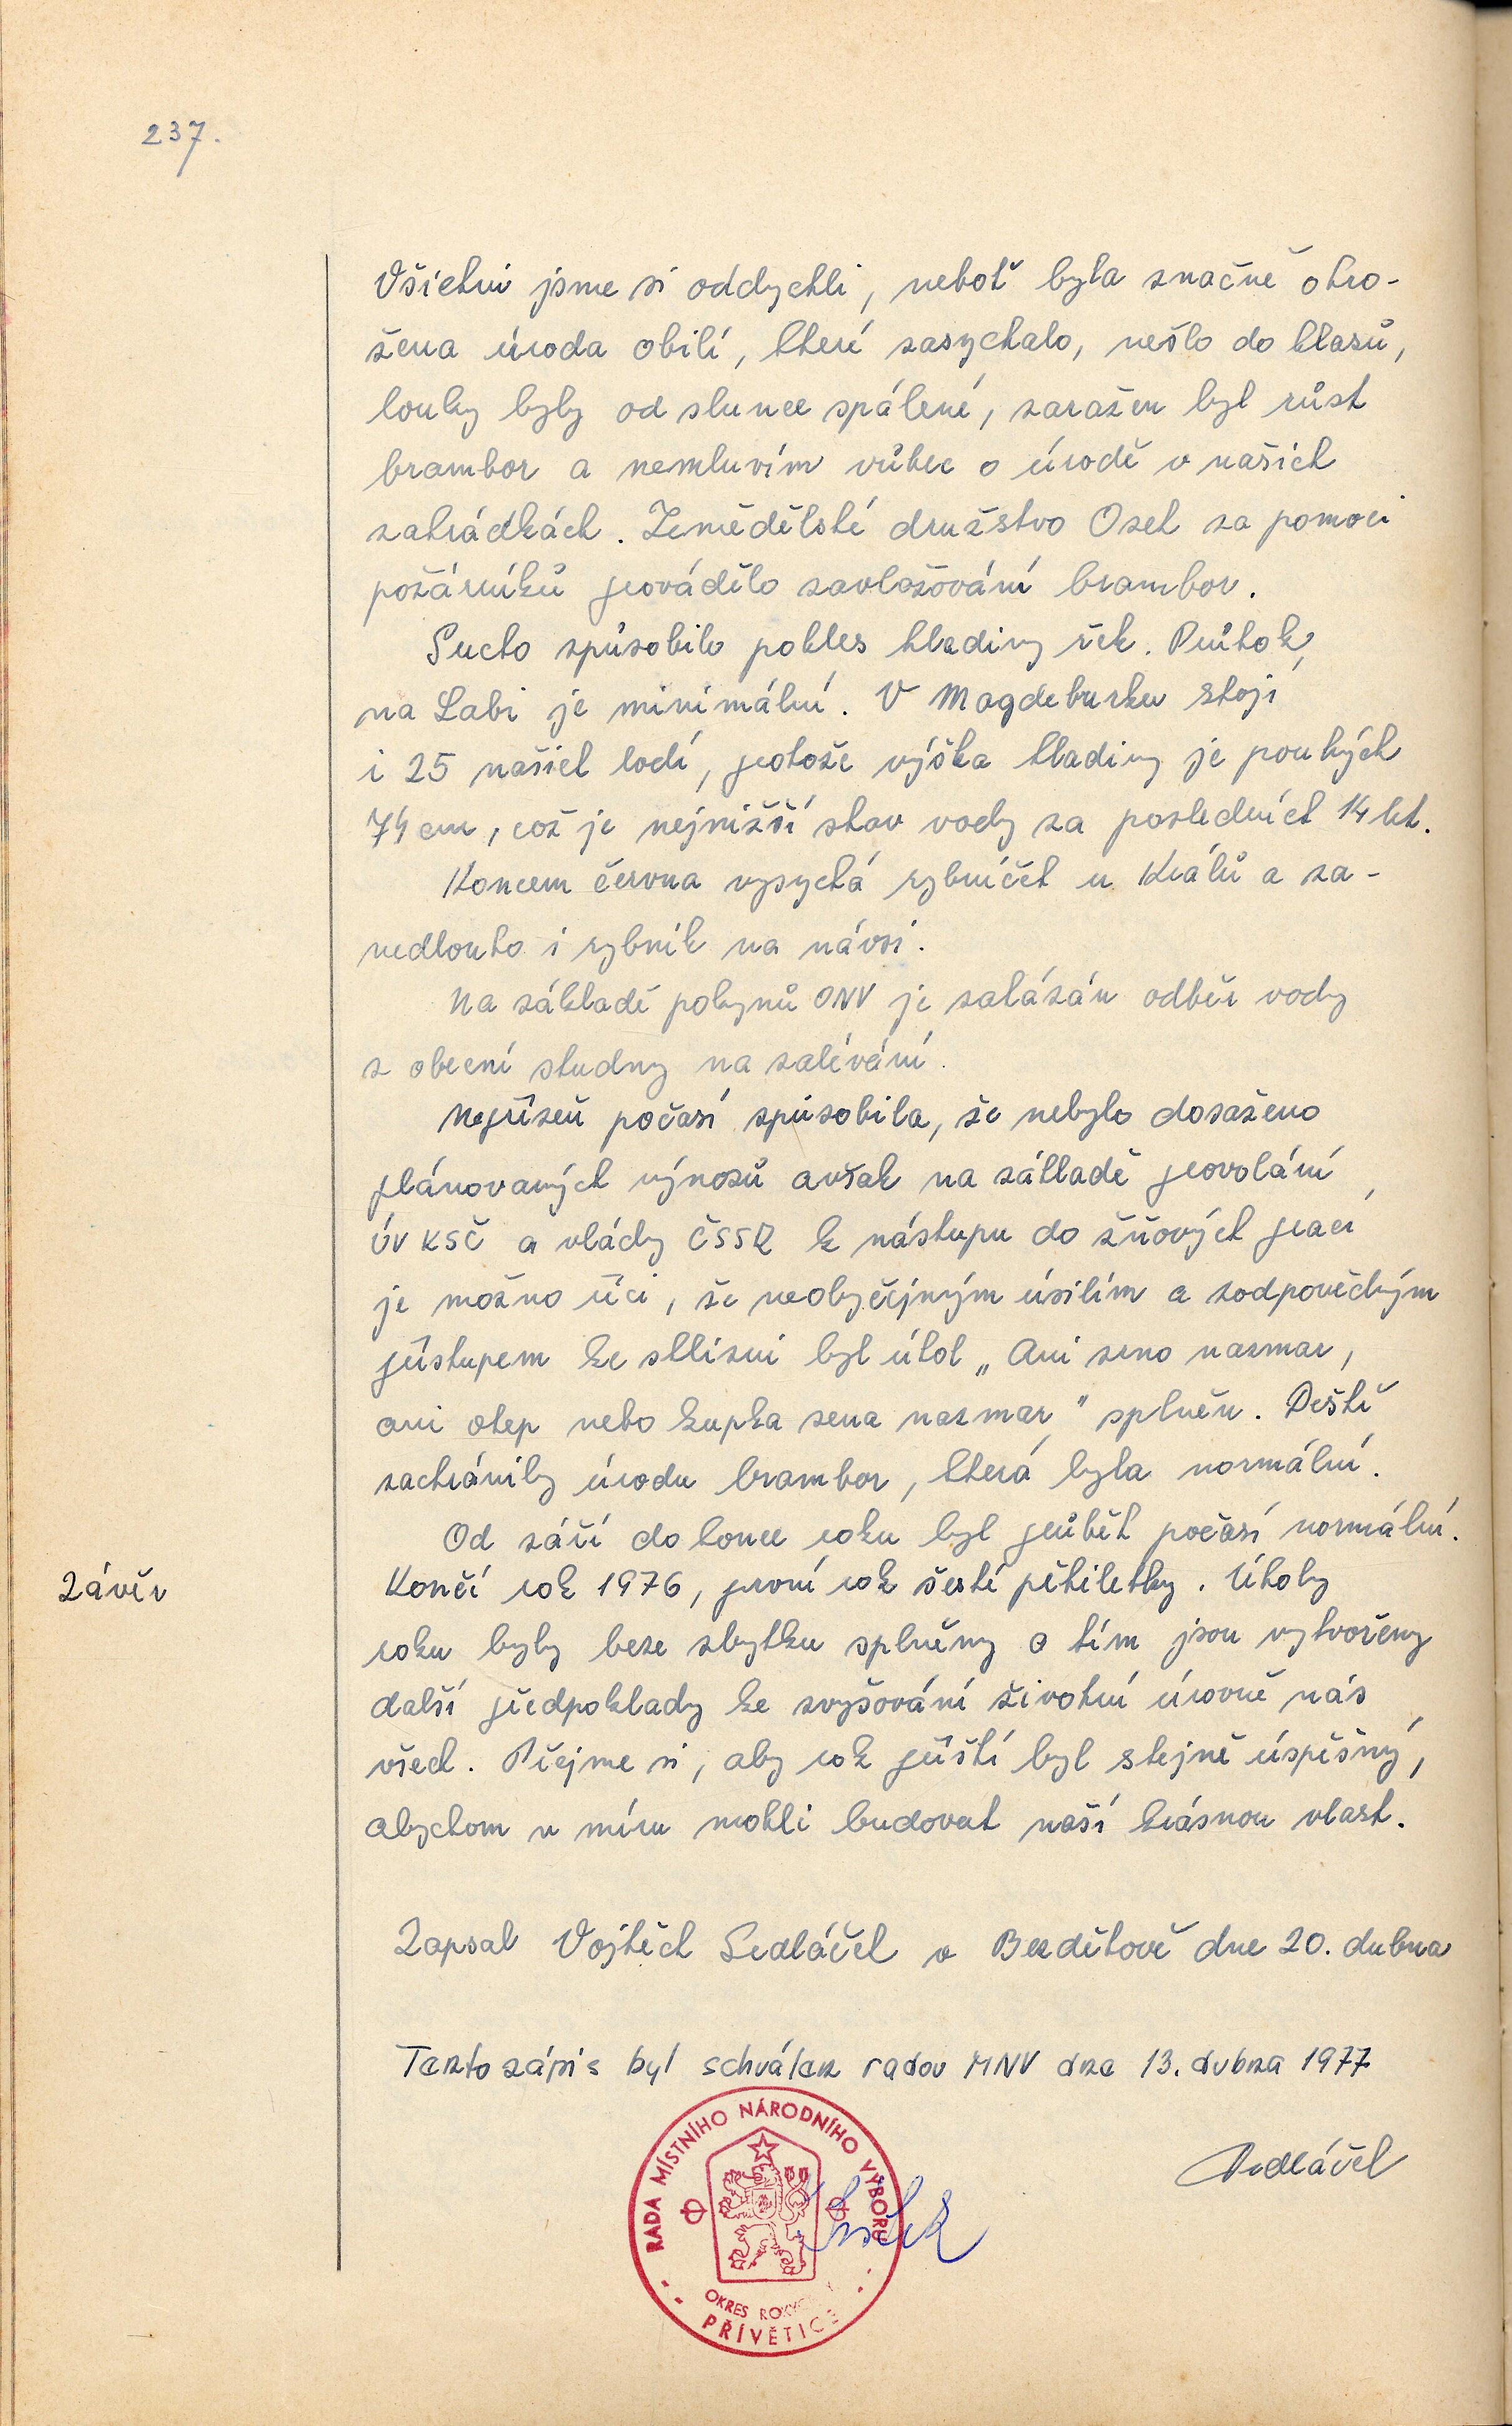 237.
Všichni jsme si oddychli, neboť byla značně ohro-
žena úroda obilí, které zasychalo, nešlo do klasů,
louky byly od slunce spálené, zaražen byl růst
brambor a nemluvím vůbec o úrodě v našich
zahrádkách. Zemědělské družstvo Osek za pomoci
požárníků provádělo zavlažování brambor.
Sucho způsobilo pokles hladiny řek. Průtok
na Labi je minimální. V Magdeburku stojí
i 25 našich lodí, protože výška hladiny je pouhých
74 cm, což je nejnižší stav vody za posledních 14 let.
Koncem června vysychá rybníček u Králů a za-
nedlouho i rybník na návsi.
Na základě pokynů ONV je zakázán odběr vody
z obecní studny na zalévání.
Nepřízeň počasí způsobila, že nebylo dosaženo
plánovaných výnosů avšak na základě provolání
ÚV KSČ a vlády ČSSR k nástupu do žňových prací
je možno říci, že neobyčejným úsilím a zodpovědným
přístupem ke sklizni byl úkol „Ani zrno nazmar,
ani otep nebo kupka sena nazmar" splněn. Deště
zachránily úrodu brambor, která byla normální.
Od září do konce roku byl průběh počasí normální.
Závěr
Končí rok 1976, první rok šesté pětiletky. Úkoly
roku byly beze zbytku splněny a tím jsou vytvořeny
další předpoklady ke zvyšování životní úrovně nás
všech. Přejme si, aby rok příští byl stejně úspěšný,
abychom v míru mohli budovat naší krásnou vlast.
Zapsal Vojtěch Sedláček v Bezděkově dne 20. dubna
Tento zápis byl schválen radou MNV dne 13. dubna 1977
Sedláček
RADA MÍSTNÍHO NÁRODNÍHO VÝBORU
OKRES
PŘÍVĚTICE